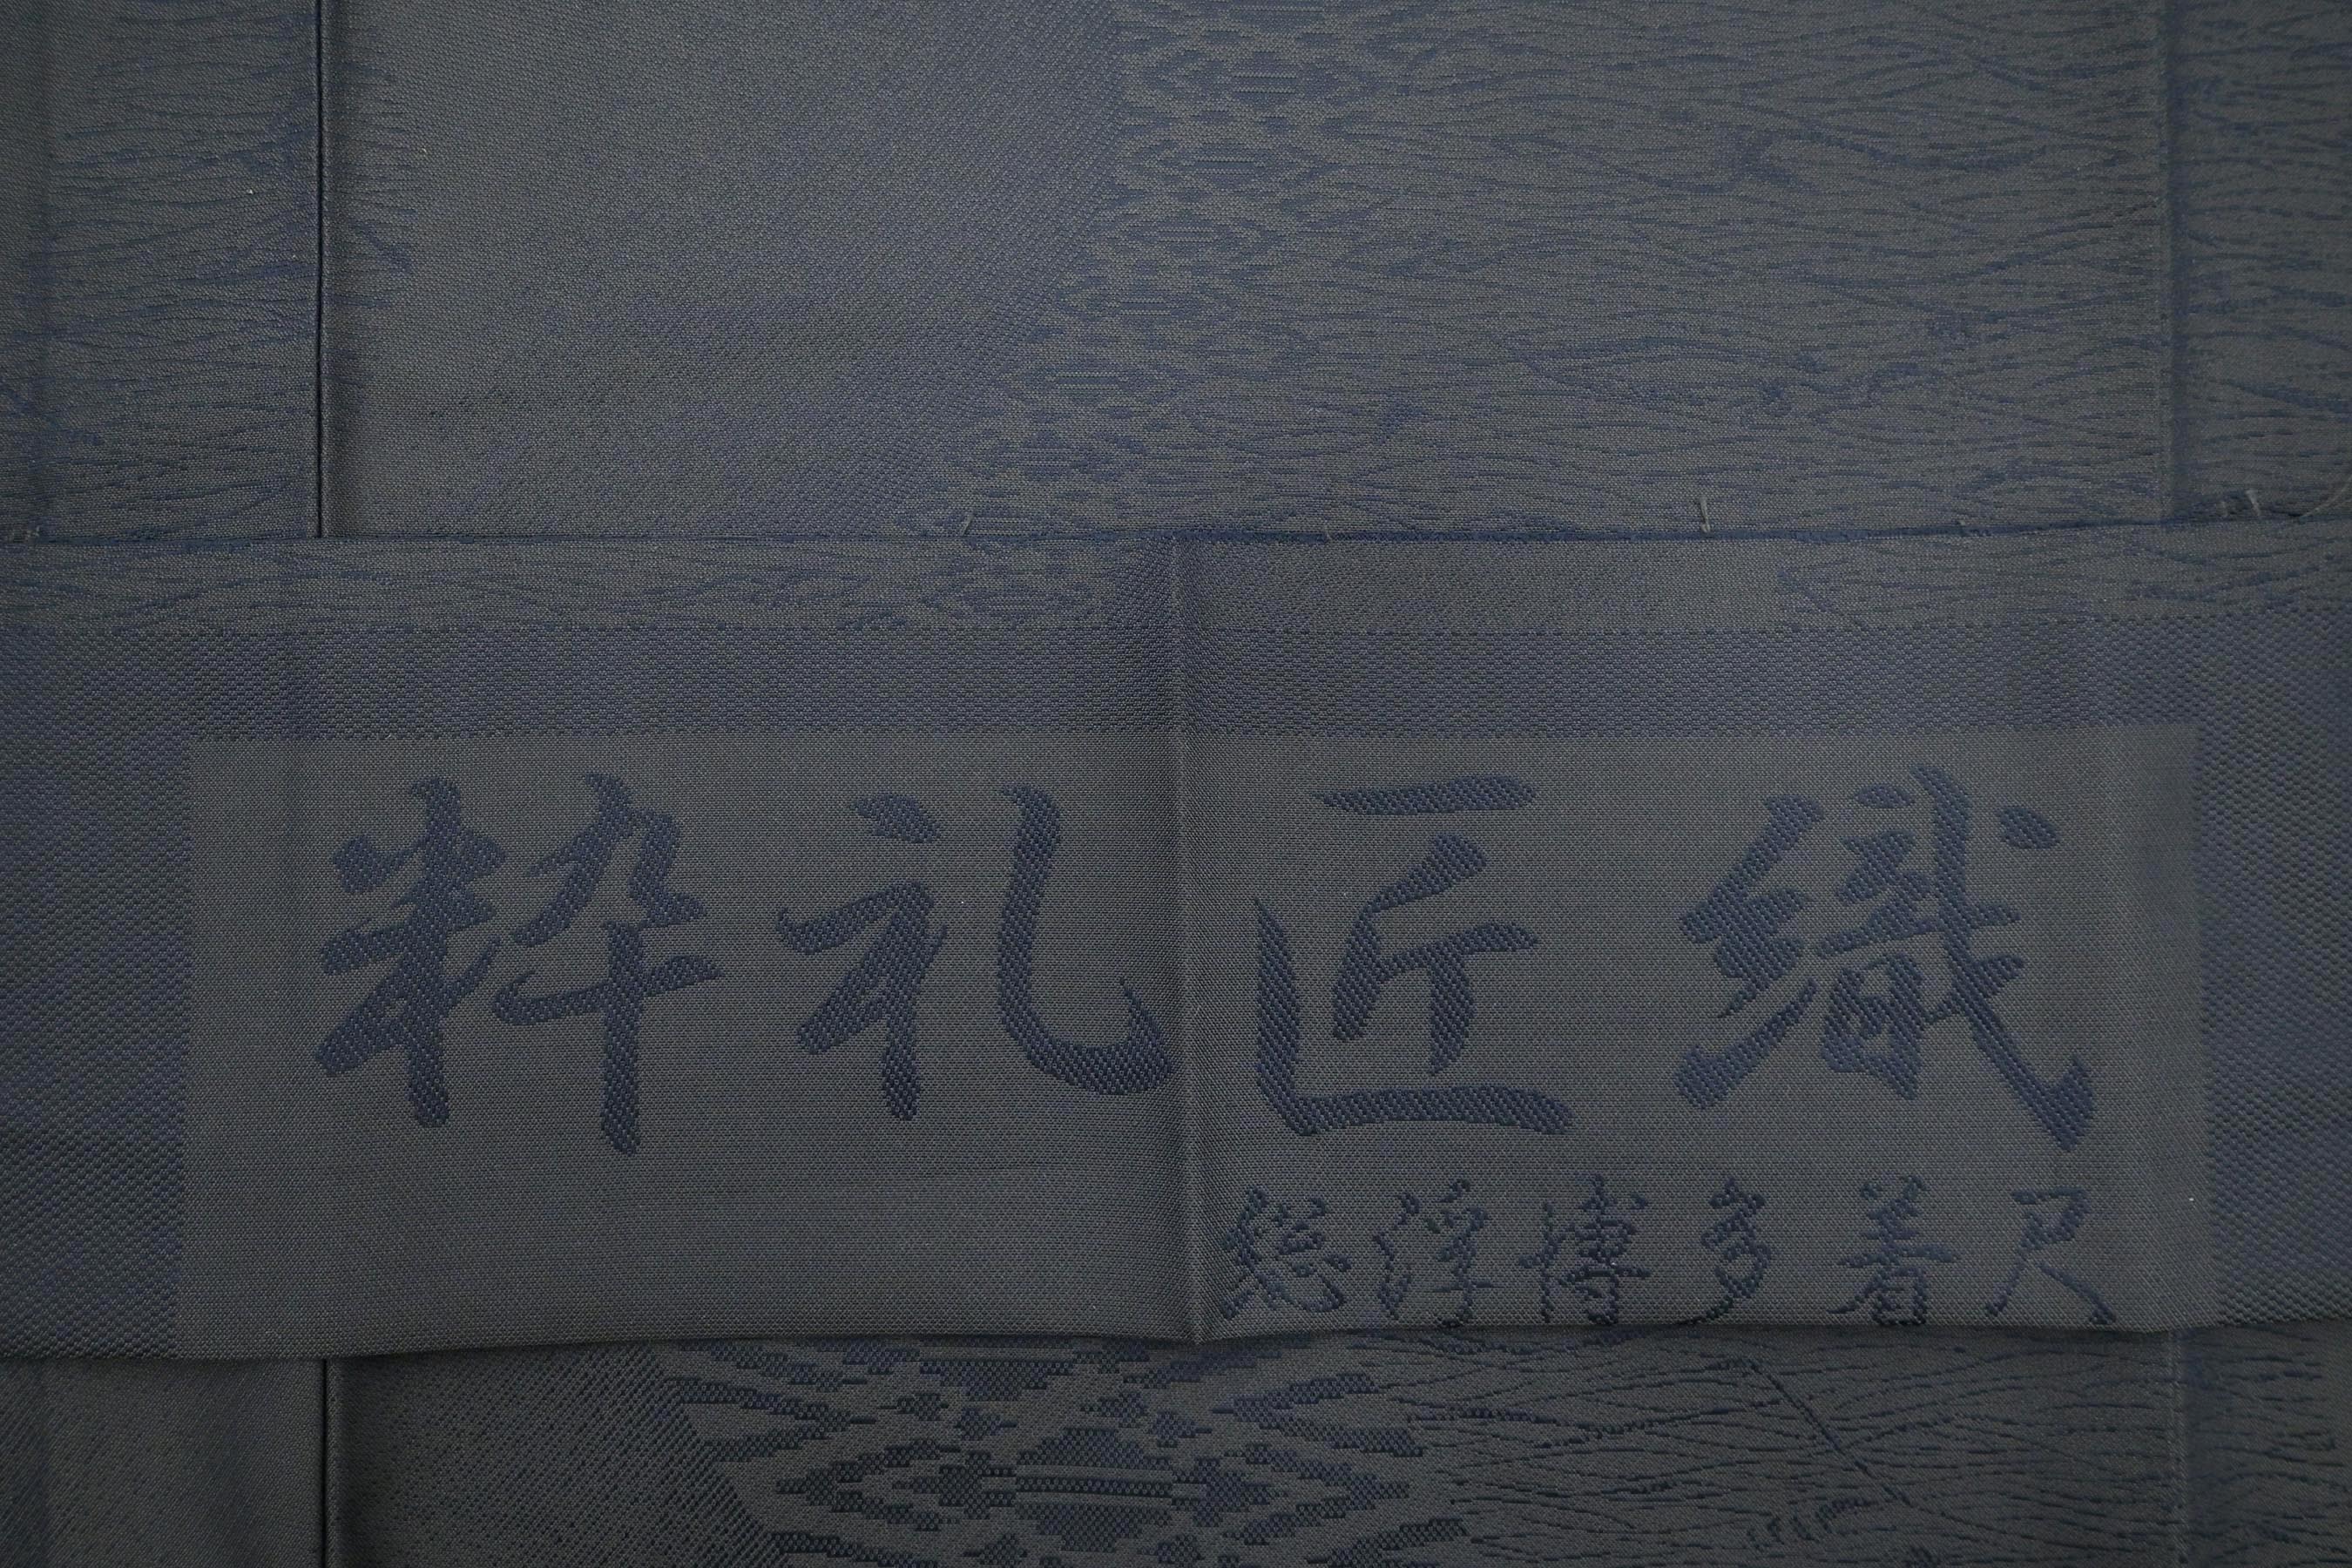 粋礼匠織
総浮博多着尺